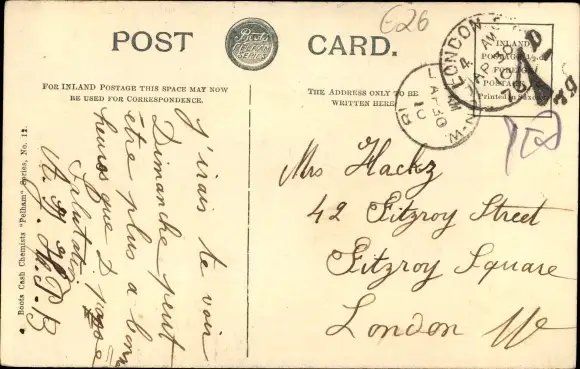 POST CARD.
Boots
FOR INLAND POSTAGE THIS SPACE MAY NOW
BE USED FOR CORRESPONDENCE.
THE ADDRESS ONLY TO BE
WRITTEN HERE
INLAND
POSTAGE
FOREIGN
POSTAGE
Printed in Saxony
LONDON
AP 18
10
E26
J'irais te voir
Dimanche peut
être plus a bonne
heures que D
Salutation
H.P.B
Mrs Hackz
42 Fitzroy Street
Fitzroy Square
London W
Boots Cash Chemists "Pelham" Series, No. 12.